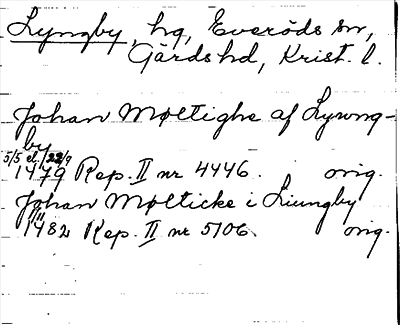 Lyngby, hg, Everöds sn,
Gärds hd, Krist. l.
Johan Møltighe af Lywng-
by
5/5 el. 22/9
1479 Rep. II nr 4446. orig.
Johan Mølticke i Liungby
1482 Rep. II nr 5106. orig.